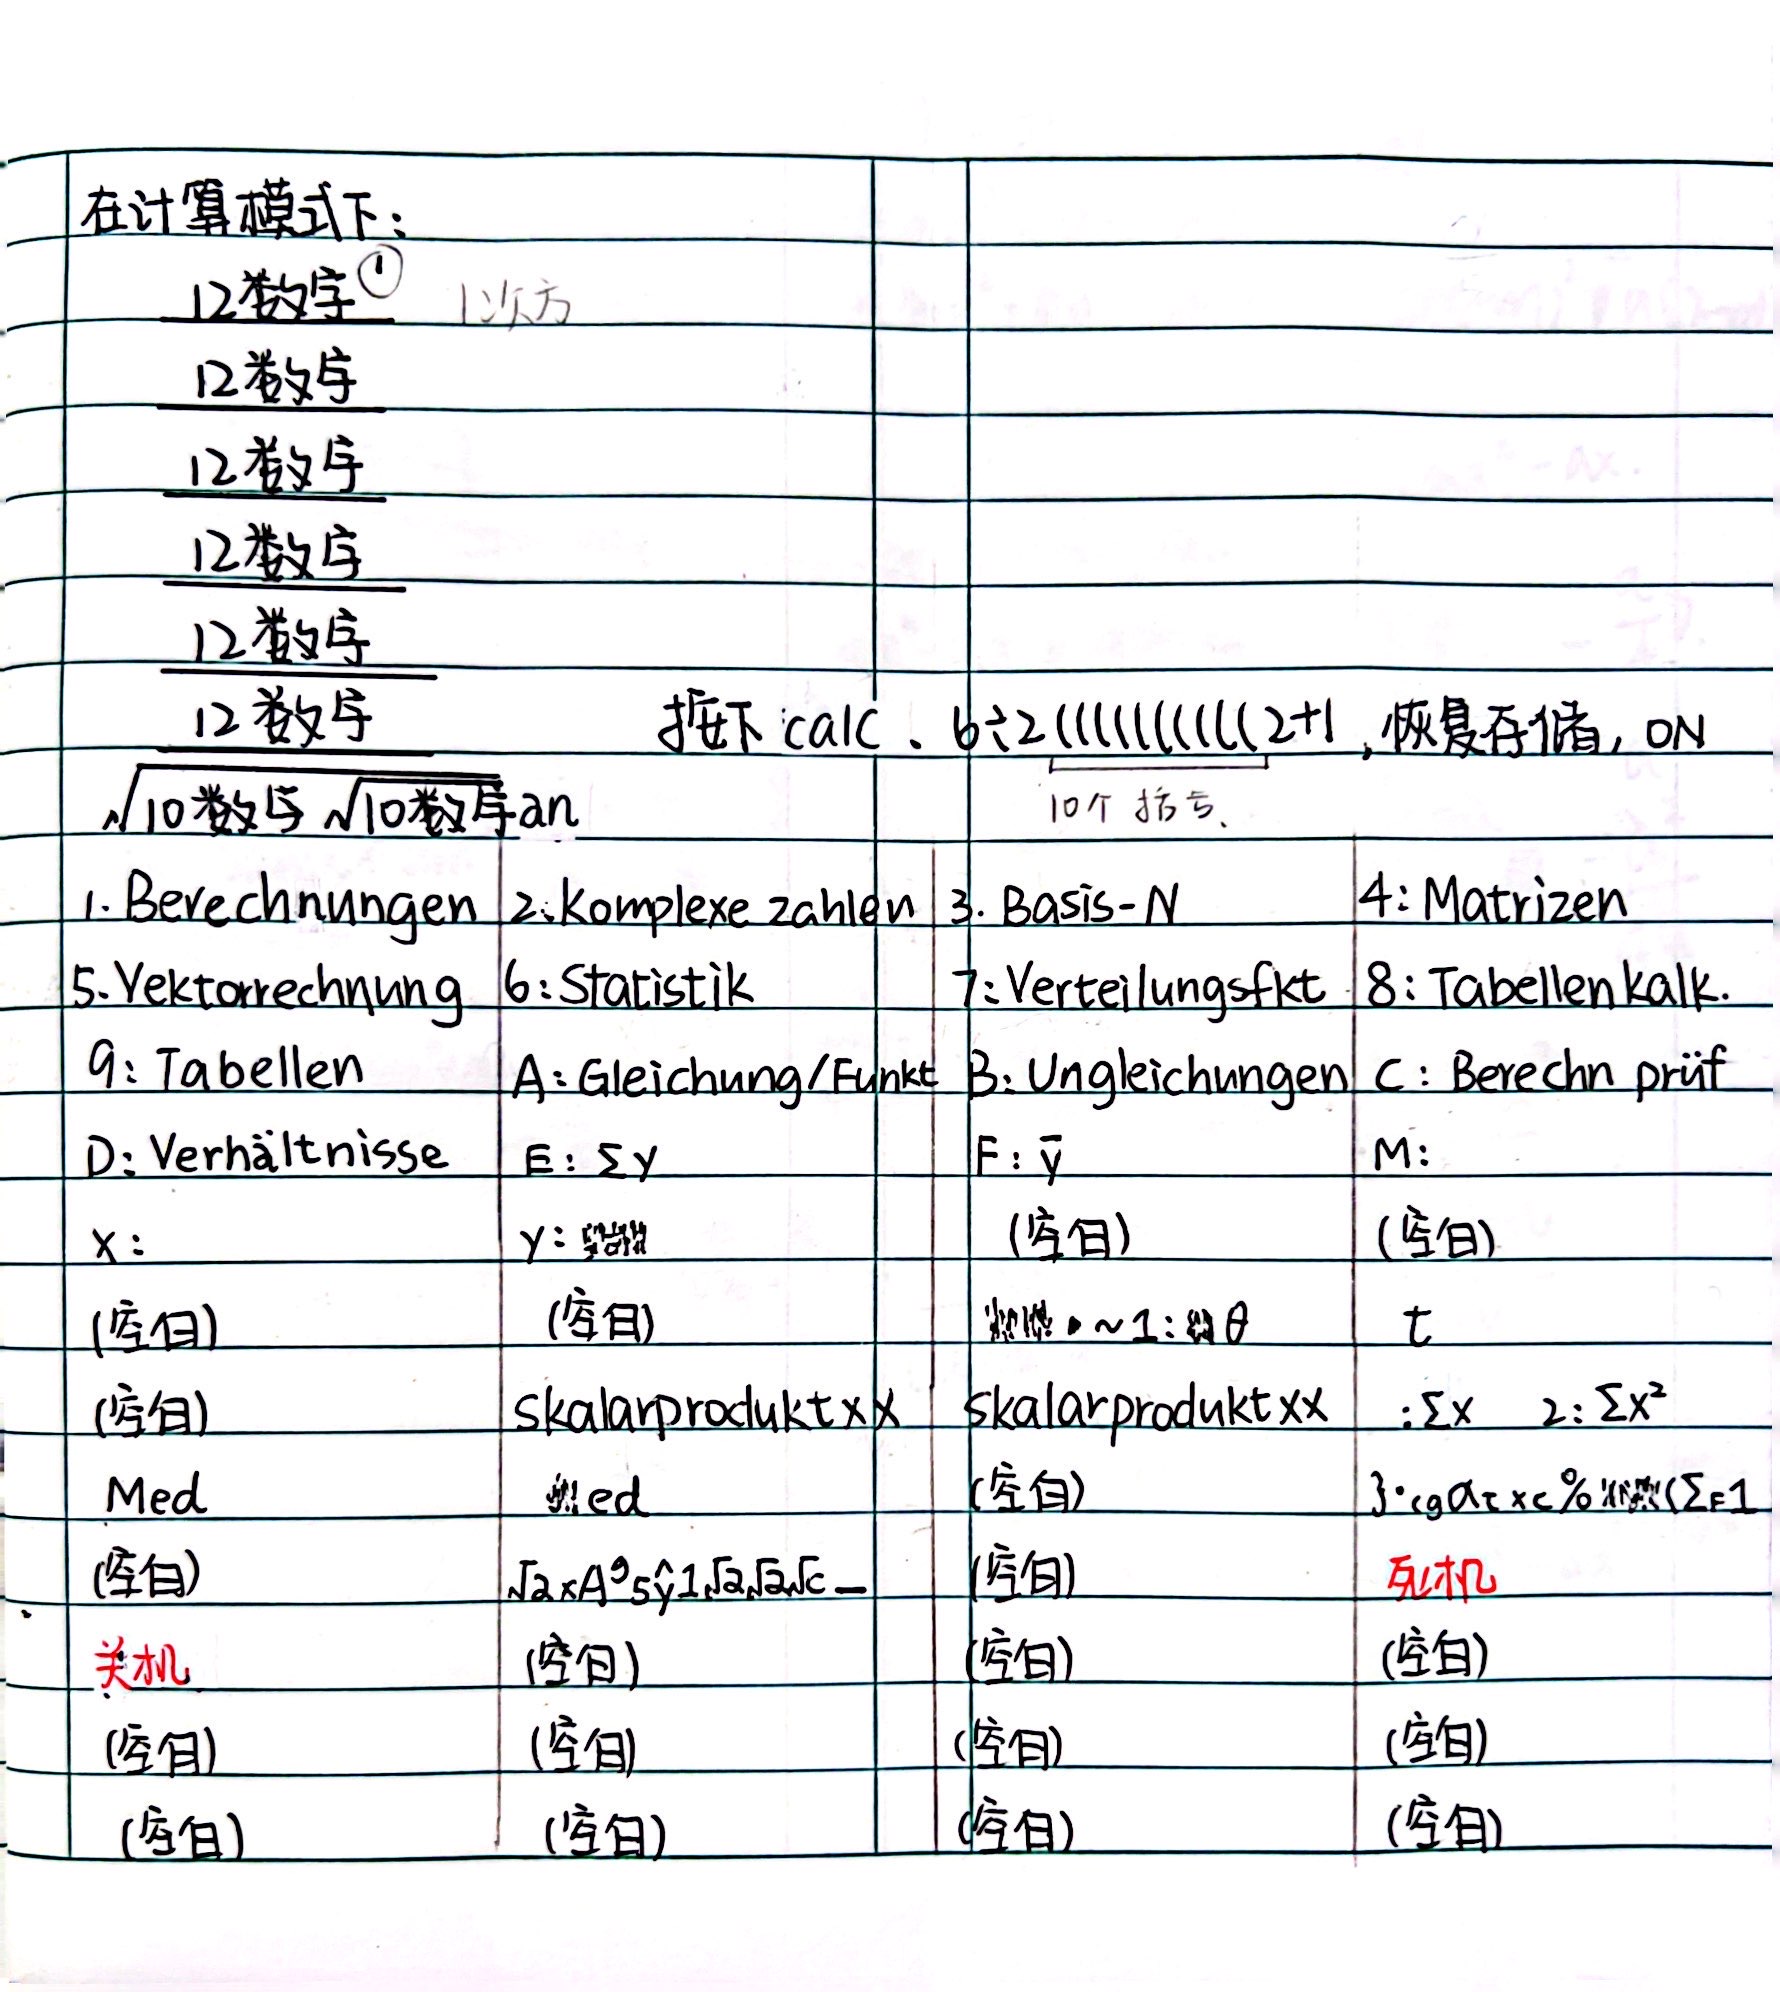 在计算模式下:
12数字① 1次方
12数字
12数字
12数字
12数字
12数字 按下calc、6÷2((((((((((2+1,恢复存储,ON
√10数字√10数字an 10个括号、
1. Berechnungen 2: Komplexe zahlen 3. Basis-N 4: Matrizen
5. Vektorrechnung 6: Statistik 7: Verteilungsfkt 8: Tabellenkalk.
9: Tabellen A: Gleichung/Funkt B: Ungleichungen C: Berechn prüf
D: Verhältnisse E: Σy F: ȳ M:
x: y: (空白) (空白)
(空白) (空白) ~1: θ t
(空白) skalarprodukt xx skalarprodukt xx :Σx 2: Σx²
Med ed (空白)
(空白) (空白) 死机
关机 (空白) (空白) (空白)
(空白) (空白) (空白) (空白)
(空白) (空白) (空白) (空白)